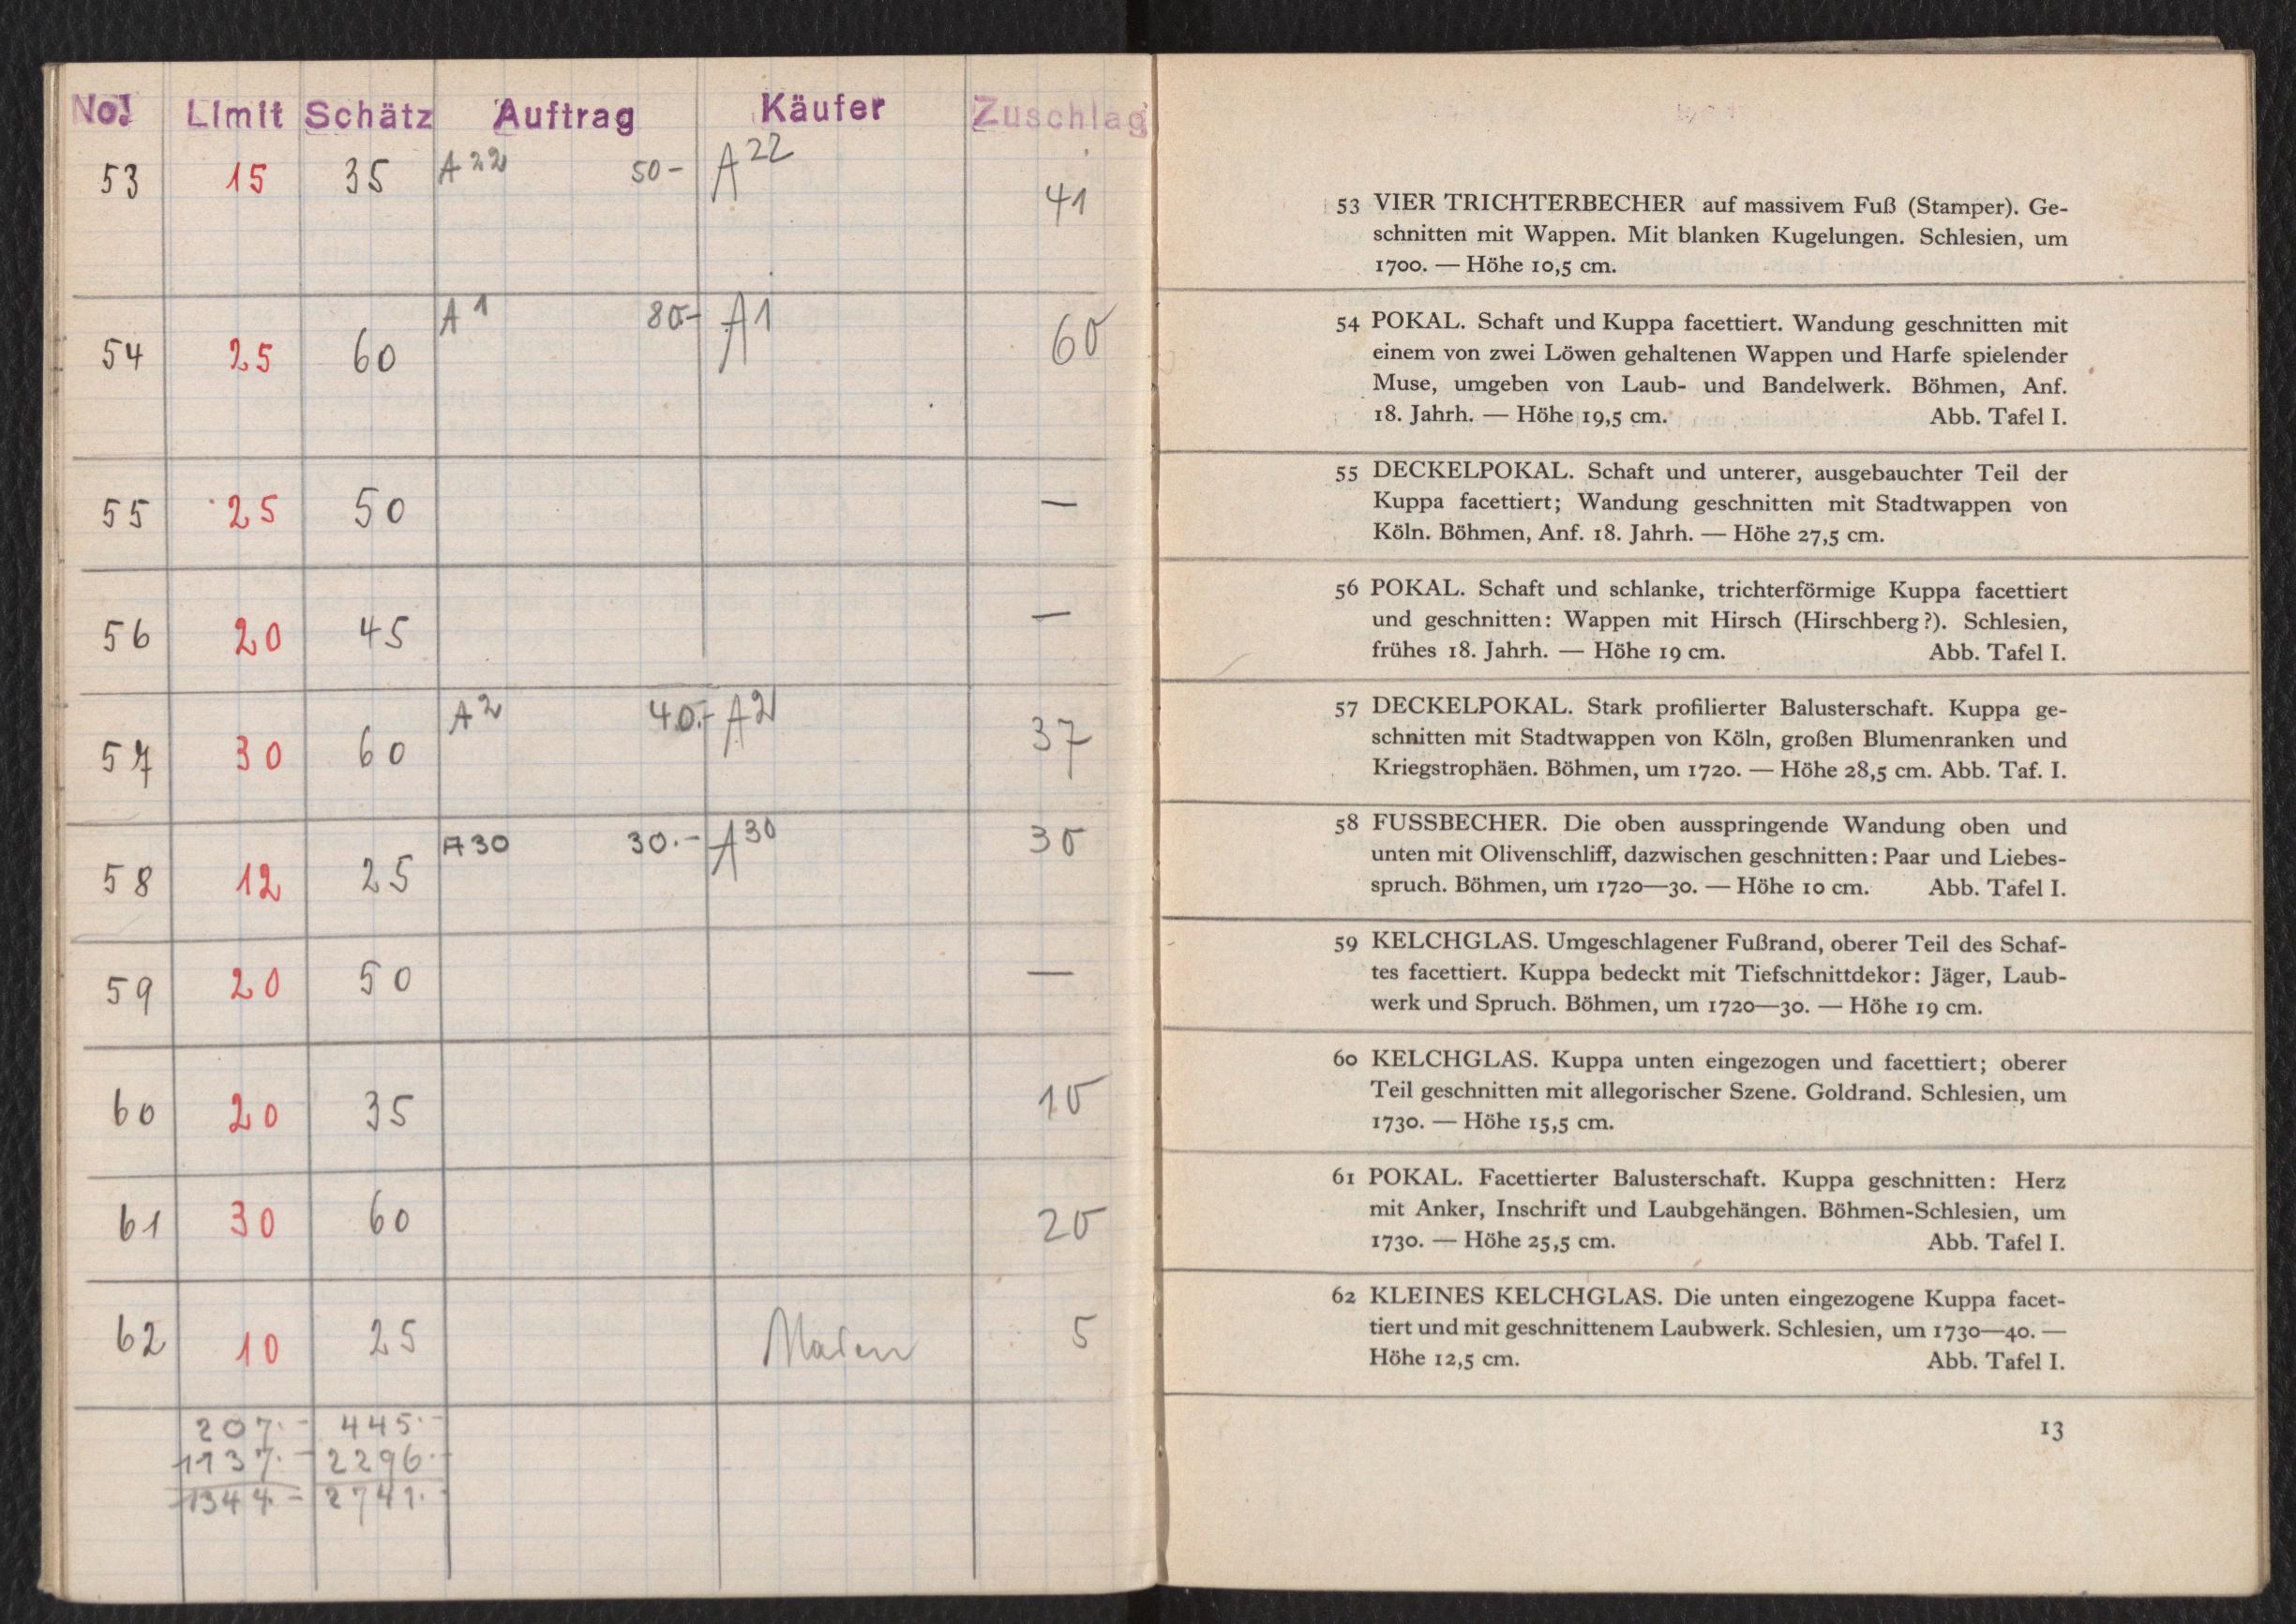 No. Limit Schätz Auftrag Käufer Zuschlag
53 15 35 A22 50- A22 41
54 25 60 A1 80- A1 60
55 25 50 —
56 20 45 —
57 30 60 A2 40.- A2 37
58 12 25 A30 30.- A30 30
59 20 50 —
60 20 35 10
61 30 60 20
62 10 25 5
207.- 445.-
1137.- 2296.-
1344.- 2741.-
53 VIER TRICHTERBECHER auf massivem Fuß (Stamper). Ge-
schnitten mit Wappen. Mit blanken Kugelungen. Schlesien, um
1700. — Höhe 10,5 cm.
54 POKAL. Schaft und Kuppa facettiert. Wandung geschnitten mit
einem von zwei Löwen gehaltenen Wappen und Harfe spielender
Muse, umgeben von Laub- und Bandelwerk. Böhmen, Anf.
18. Jahrh. — Höhe 19,5 cm. Abb. Tafel I.
55 DECKELPOKAL. Schaft und unterer, ausgebauchter Teil der
Kuppa facettiert; Wandung geschnitten mit Stadtwappen von
Köln. Böhmen, Anf. 18. Jahrh. — Höhe 27,5 cm.
56 POKAL. Schaft und schlanke, trichterförmige Kuppa facettiert
und geschnitten: Wappen mit Hirsch (Hirschberg?). Schlesien,
frühes 18. Jahrh. — Höhe 19 cm. Abb. Tafel I.
57 DECKELPOKAL. Stark profilierter Balusterschaft. Kuppa ge-
schnitten mit Stadtwappen von Köln, großen Blumenranken und
Kriegstrophäen. Böhmen, um 1720. — Höhe 28,5 cm. Abb. Taf. I.
58 FUSSBECHER. Die oben ausspringende Wandung oben und
unten mit Olivenschliff, dazwischen geschnitten: Paar und Liebes-
spruch. Böhmen, um 1720—30. — Höhe 10 cm. Abb. Tafel I.
59 KELCHGLAS. Umgeschlagener Fußrand, oberer Teil des Schaf-
tes facettiert. Kuppa bedeckt mit Tiefschnittdekor: Jäger, Laub-
werk und Spruch. Böhmen, um 1720—30. — Höhe 19 cm.
60 KELCHGLAS. Kuppa unten eingezogen und facettiert; oberer
Teil geschnitten mit allegorischer Szene. Goldrand. Schlesien, um
1730. — Höhe 15,5 cm.
61 POKAL. Facettierter Balusterschaft. Kuppa geschnitten: Herz
mit Anker, Inschrift und Laubgehängen. Böhmen-Schlesien, um
1730. — Höhe 25,5 cm. Abb. Tafel I.
62 KLEINES KELCHGLAS. Die unten eingezogene Kuppa facet-
tiert und mit geschnittenem Laubwerk. Schlesien, um 1730—40. —
Höhe 12,5 cm. Abb. Tafel I.
13